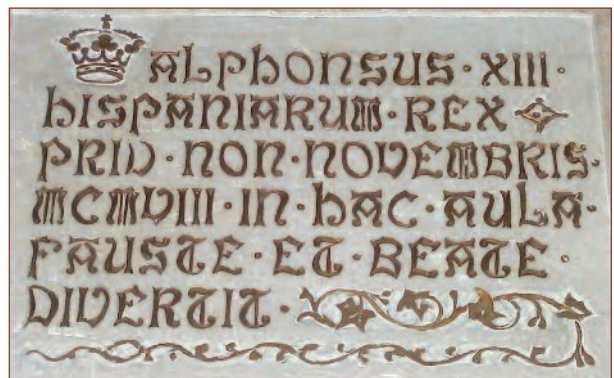 ALPhONSUS · XIII ·
hISPANIARUM · REX
PRID · NON · NOVEMBRIS ·
MCMVIII · IN · hAC · AULA ·
FAUSTE · ET · BEATE ·
DIVERTIT ·